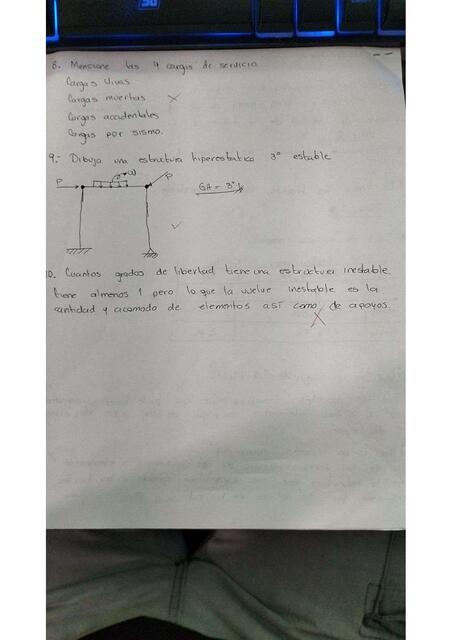 8. Mencione las 4 cargas de servicio
Cargas Vivas
Cargas muertas
Cargas accidentales
Cargas por sismo.
9.- Dibuja una estructura hiperestatica 3° estable
P
W
P
GH = 3°
10. Cuantos grados de libertad tiene una estructura inestable
tiene almenos 1 pero lo que la vuelve inestable es la
cantidad y acomodo de elementos así como de apoyos.